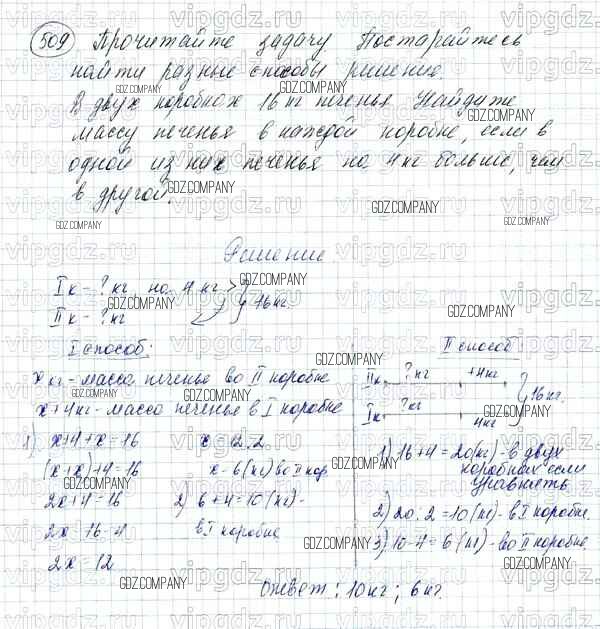 509 Прочитайте задачу Постарайтесь
найти разные способы решение.
В двух коробках 16 кг печенья Найдите
массу печенья в каждой коробке, если в
одной из них печенья на 4 кг больше, чем
в другой.
Решение
I к - ? кг, на 4 кг > } 16 кг.
II к - ? кг
I способ:
x кг - масса печенье во II коробке
x+4 кг - масса печенье в I коробке
1) x+4+x=16
(x+x)+4=16
2x+4=16
2x=16-4
2x=12
x=12:2
x=6(кг) во II кор.
2) 6+4=10(кг)-
в I коробке
II способ
II к. ? кг +4 кг
I к. ? кг 4 кг } 16 кг.
1) 16+4=20(кг)-в двух
коробках если
уравнять
2) 20:2=10(кг)-в I коробке.
3) 10-4=6(кг)-во II коробке.
Ответ: 10 кг; 6 кг.
GDZ.COMPANY
vipgdz.ru